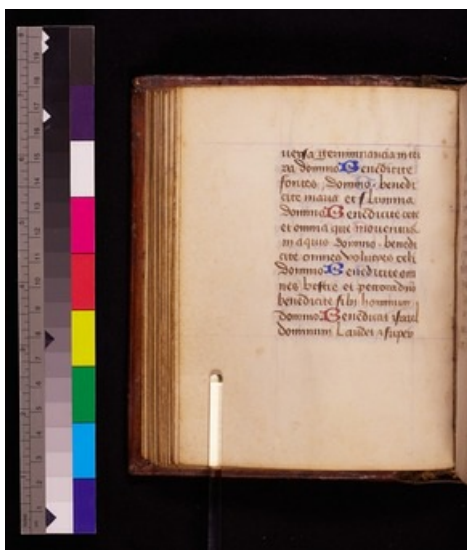 uersa germinancia in ter
ra domino Benedicite
fontes domino benedi
cite maria et flumina
domino Benedicite cete
et omnia que mouentur
in aquis domino benedi
cite omnes volucres celi
domino Benedicite om
nes bestie et peccora dno
benedicite filii hominum
domino Benedicat israel
dominum Laudet et super